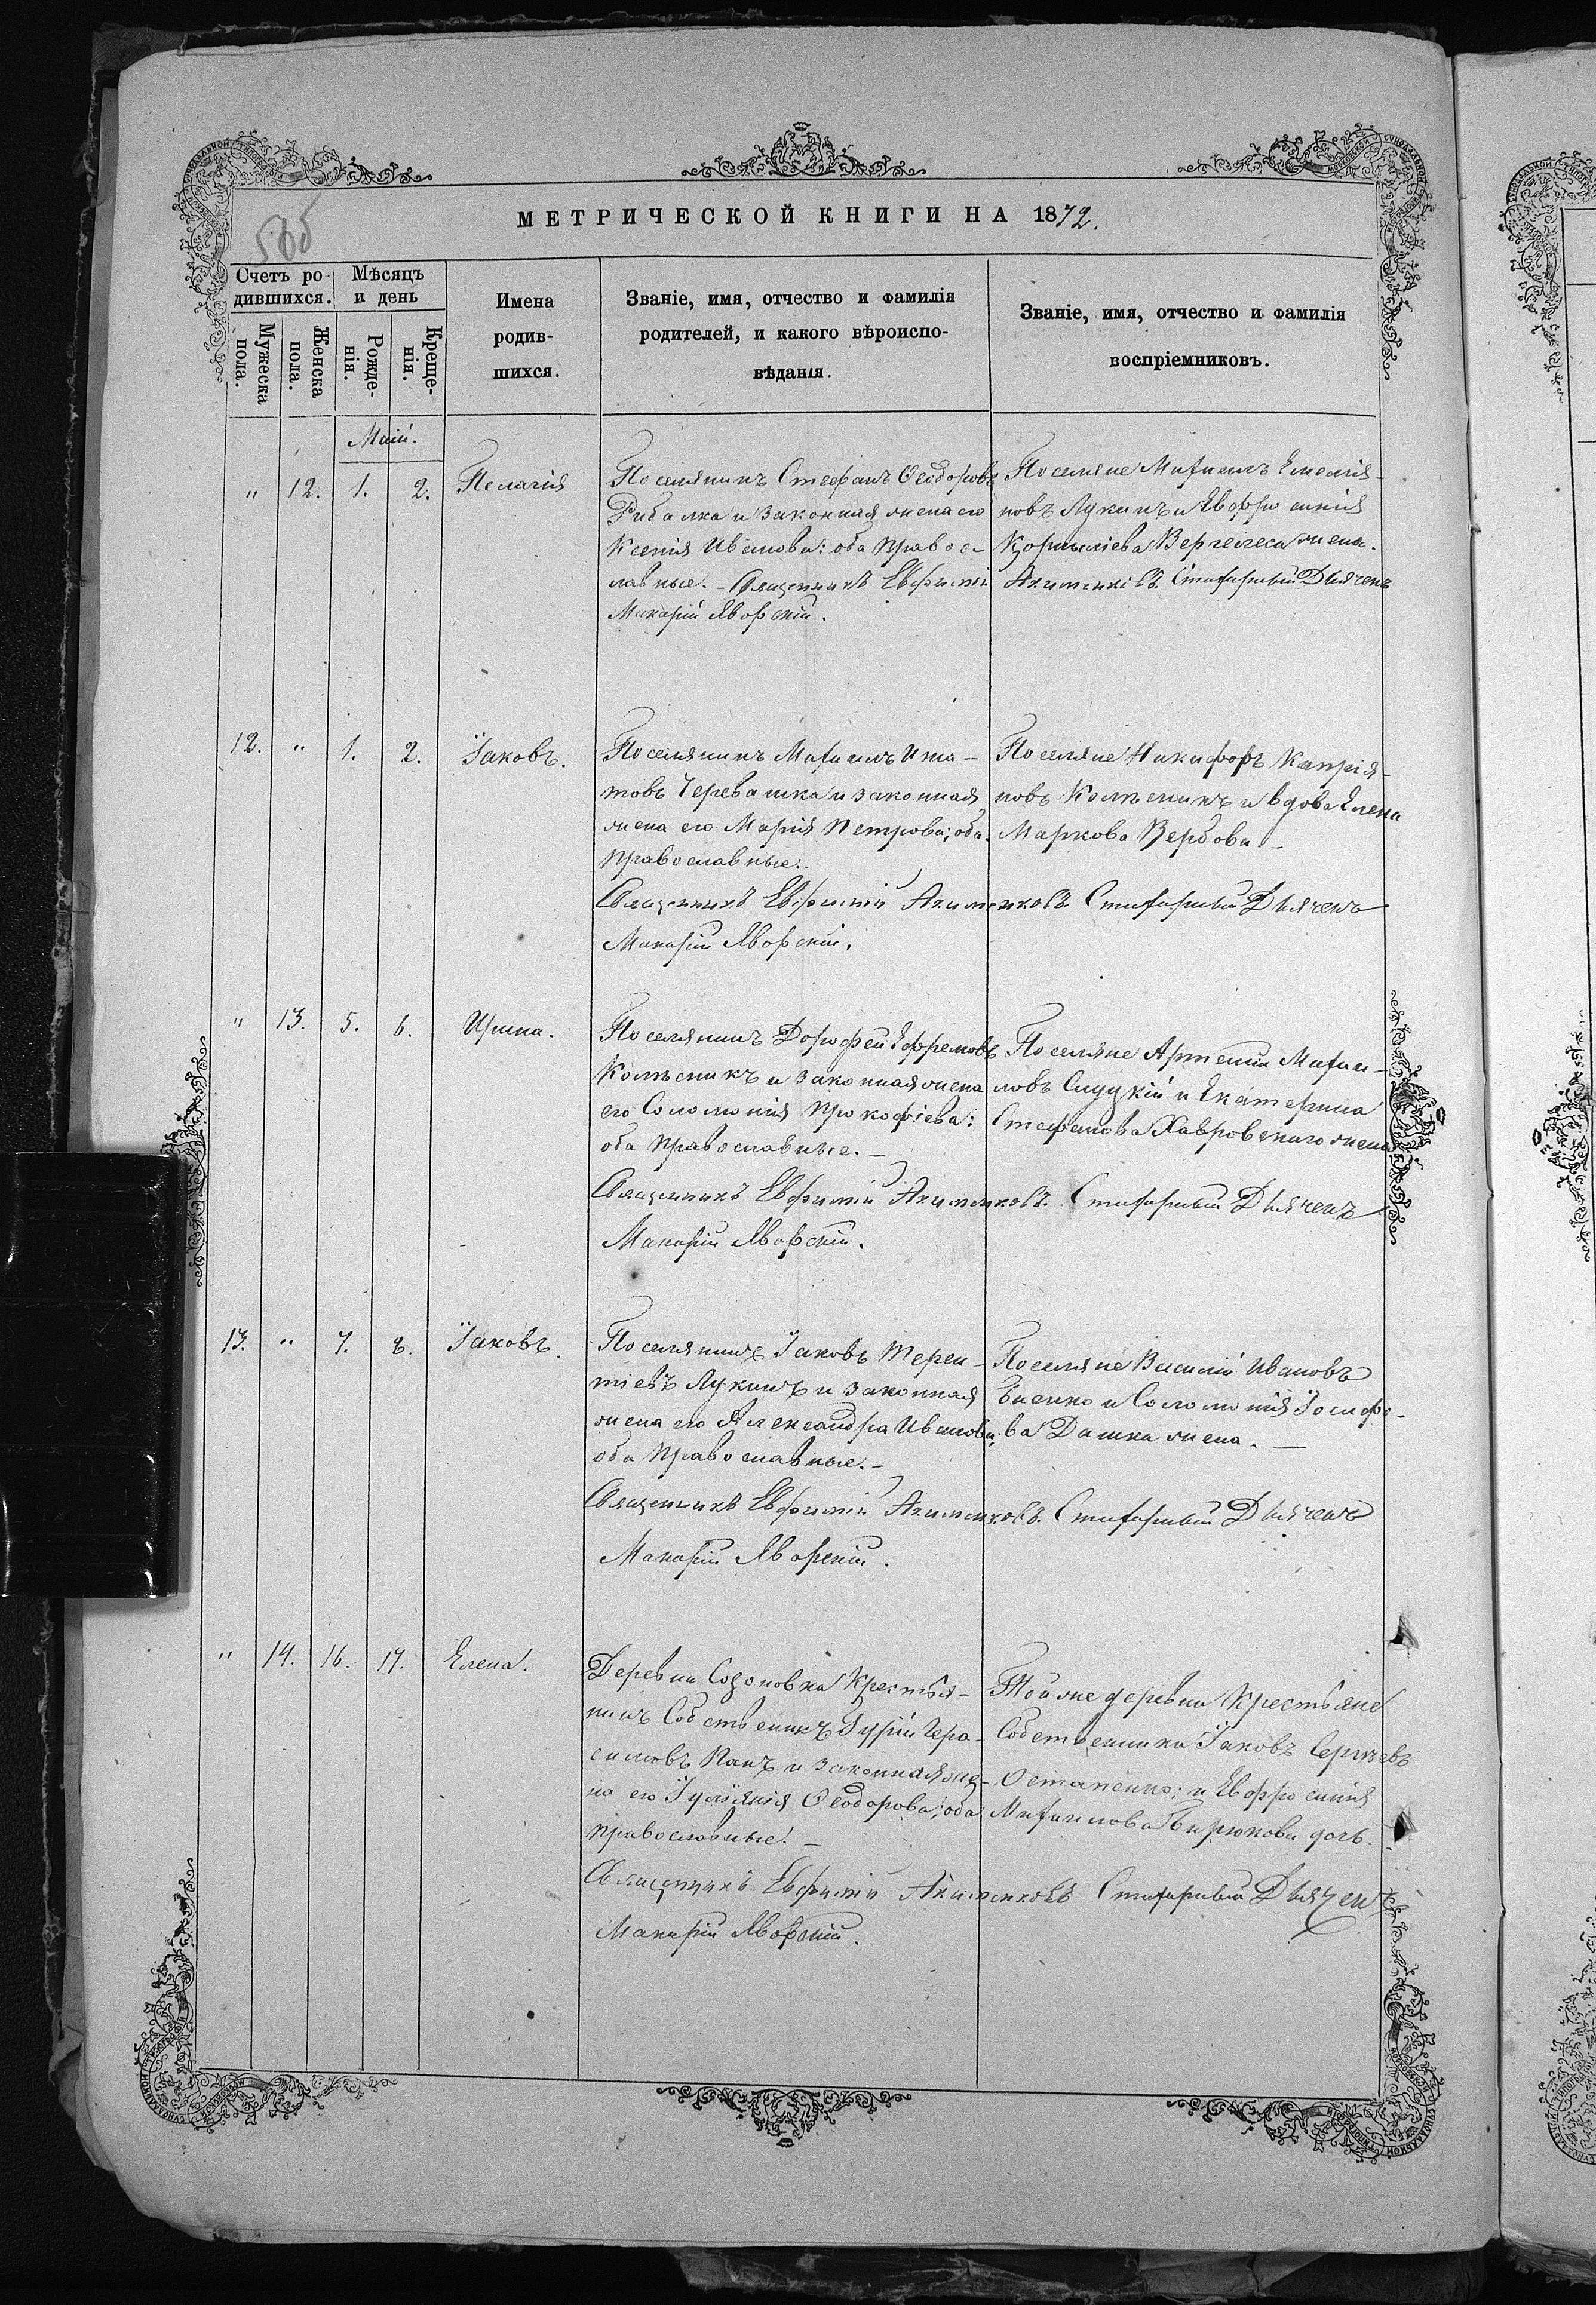 МЕТРИЧЕСКОЙ КНИГИ НА 1872.
Счетъ родившихся.
Мѣсяцъ и день
Мужеска пола.
Женска пола.
Рожденія.
Крещенія.
Имена родившихся.
Званіе, имя, отчество и фамилія
родителей, и какого вѣроиспо-
вѣданія.
Званіе, имя, отчество и фамилія
воспріемниковъ.
Маій.
" 12. 1. 2. Пелагія
Поселянинъ Стефанъ Ѳеодоровъ
Рибалка и законная жена его
Ксенія Иванова: оба правос-
лавные. – Священникъ Евфимій
Макарій Яворскій.
Поселяне Михаилъ Емелія-
новъ Лукинъ и Евфросинія
Корниліева жена.
Акименковъ. Стихарный Дьячекъ
12. " 1. 2. Іаковъ.
Поселянинъ Михаилъ Игна-
товъ Черевашка и законная
жена его Марія Петрова; оба
православные. –
Священникъ Евфимій Акименковъ. Стихарный Дьячекъ
Макарій Яворскій.
Поселяне Никифоръ Капрія-
новъ Колѣсникъ и вдова Елена
Маркова Вербова. –
" 13. 5. 6. Ирина.
Поселянинъ Дорофей Ефремовъ
Колѣсникъ и законная жена
его Соломонія Прокофіева:
оба православные. –
Священникъ Евфимій Акименковъ. Стихарный Дьячекъ
Макарій Яворскій.
Поселяне Артемій Михаи-
ловъ Слуцкій и Екатерина
Стефанова Хавровскаго жена
13. " 7. 8. Іаковъ.
Поселянинъ Іаковъ Терен-
тіевъ Лукинъ и законная
жена его Александра Иванова;
оба православные. –
Священникъ Евфимій Акименковъ. Стихарный Дьячекъ
Макарій Яворскій.
Поселяне Василій Ивановъ
и Соломонія Іосифо-
ва Дашка жена. –
" 14. 16. 17. Елена.
Деревни Созоновка Крестья-
нинъ Собственникъ Гурій Гера-
симовъ Панъ и законная же-
на его Іуліянія Ѳеодорова; оба
православные. –
Священникъ Евфимій Акименковъ Стихарный Дьячекъ
Макарій Яворскій.
Той же деревни Крестьяне
Собственники Іаковъ Сергѣевъ
Остапенко; и Евфросинія
Михаилова Бирюкова дочь.